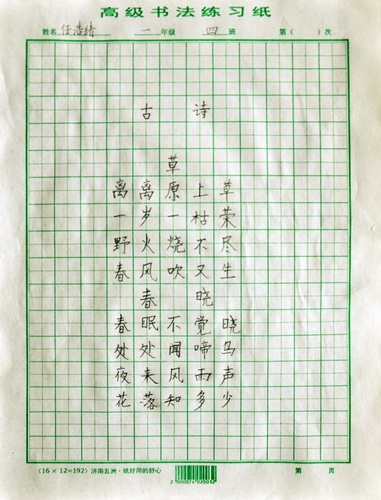 高级书法练习纸
姓名 任浩 一 年级 四 班 第( )次
古 诗
草
离离原上草
一岁一枯荣
野火烧不尽
春风吹又生
春 晓
春眠不觉晓
处处闻啼鸟
夜来风雨声
花落知多少
(16×12=192) 济南五洲·纸好用的舒心 第 页